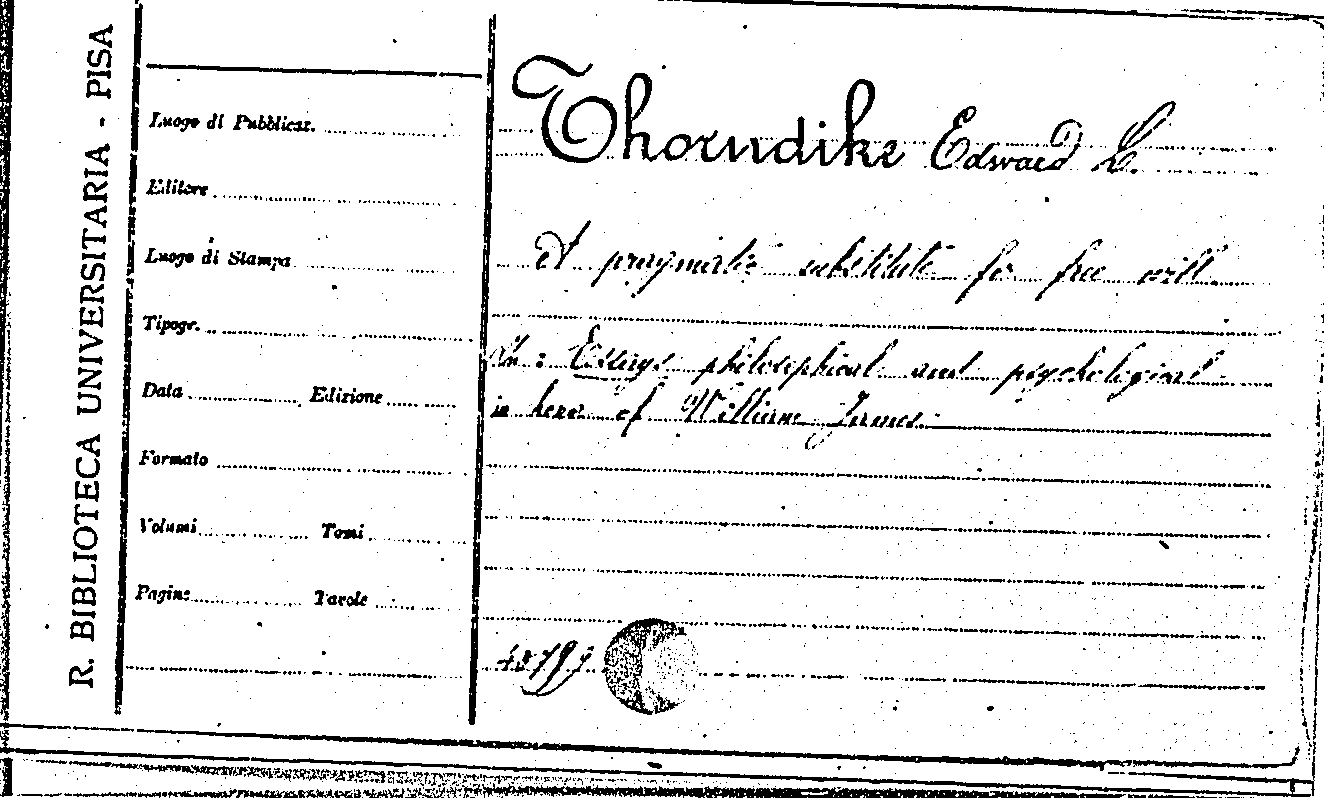 R. BIBLIOTECA UNIVERSITARIA - PISA
Luogo di Pubblicaz.
Editore
Luogo di Stampa
Tipogr.
Data Edizione
Formato
Volumi Tomi
Pagine Tavole
Thorndike Edward L.
A pragmatic substitute for free will
In: Essays philosophical and psychological
in of William James.